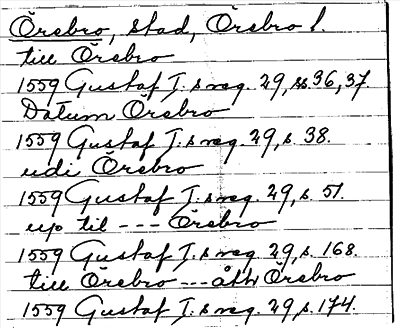 Örebro, stad, Örebro l.
till Örebro
1559 Gustaf I.s reg. 29, ss. 36, 37.
Datum Örebro
1559 Gustaf I.s reg. 29, s. 38.
udi Örebro
1559 Gustaf I.s reg. 29, s. 51.
up til --- Örebro
1559 Gustaf I.s reg. 29, s. 168.
till Örebro --- åth Örebro
1559 Gustaf I.s reg. 29, s. 174.